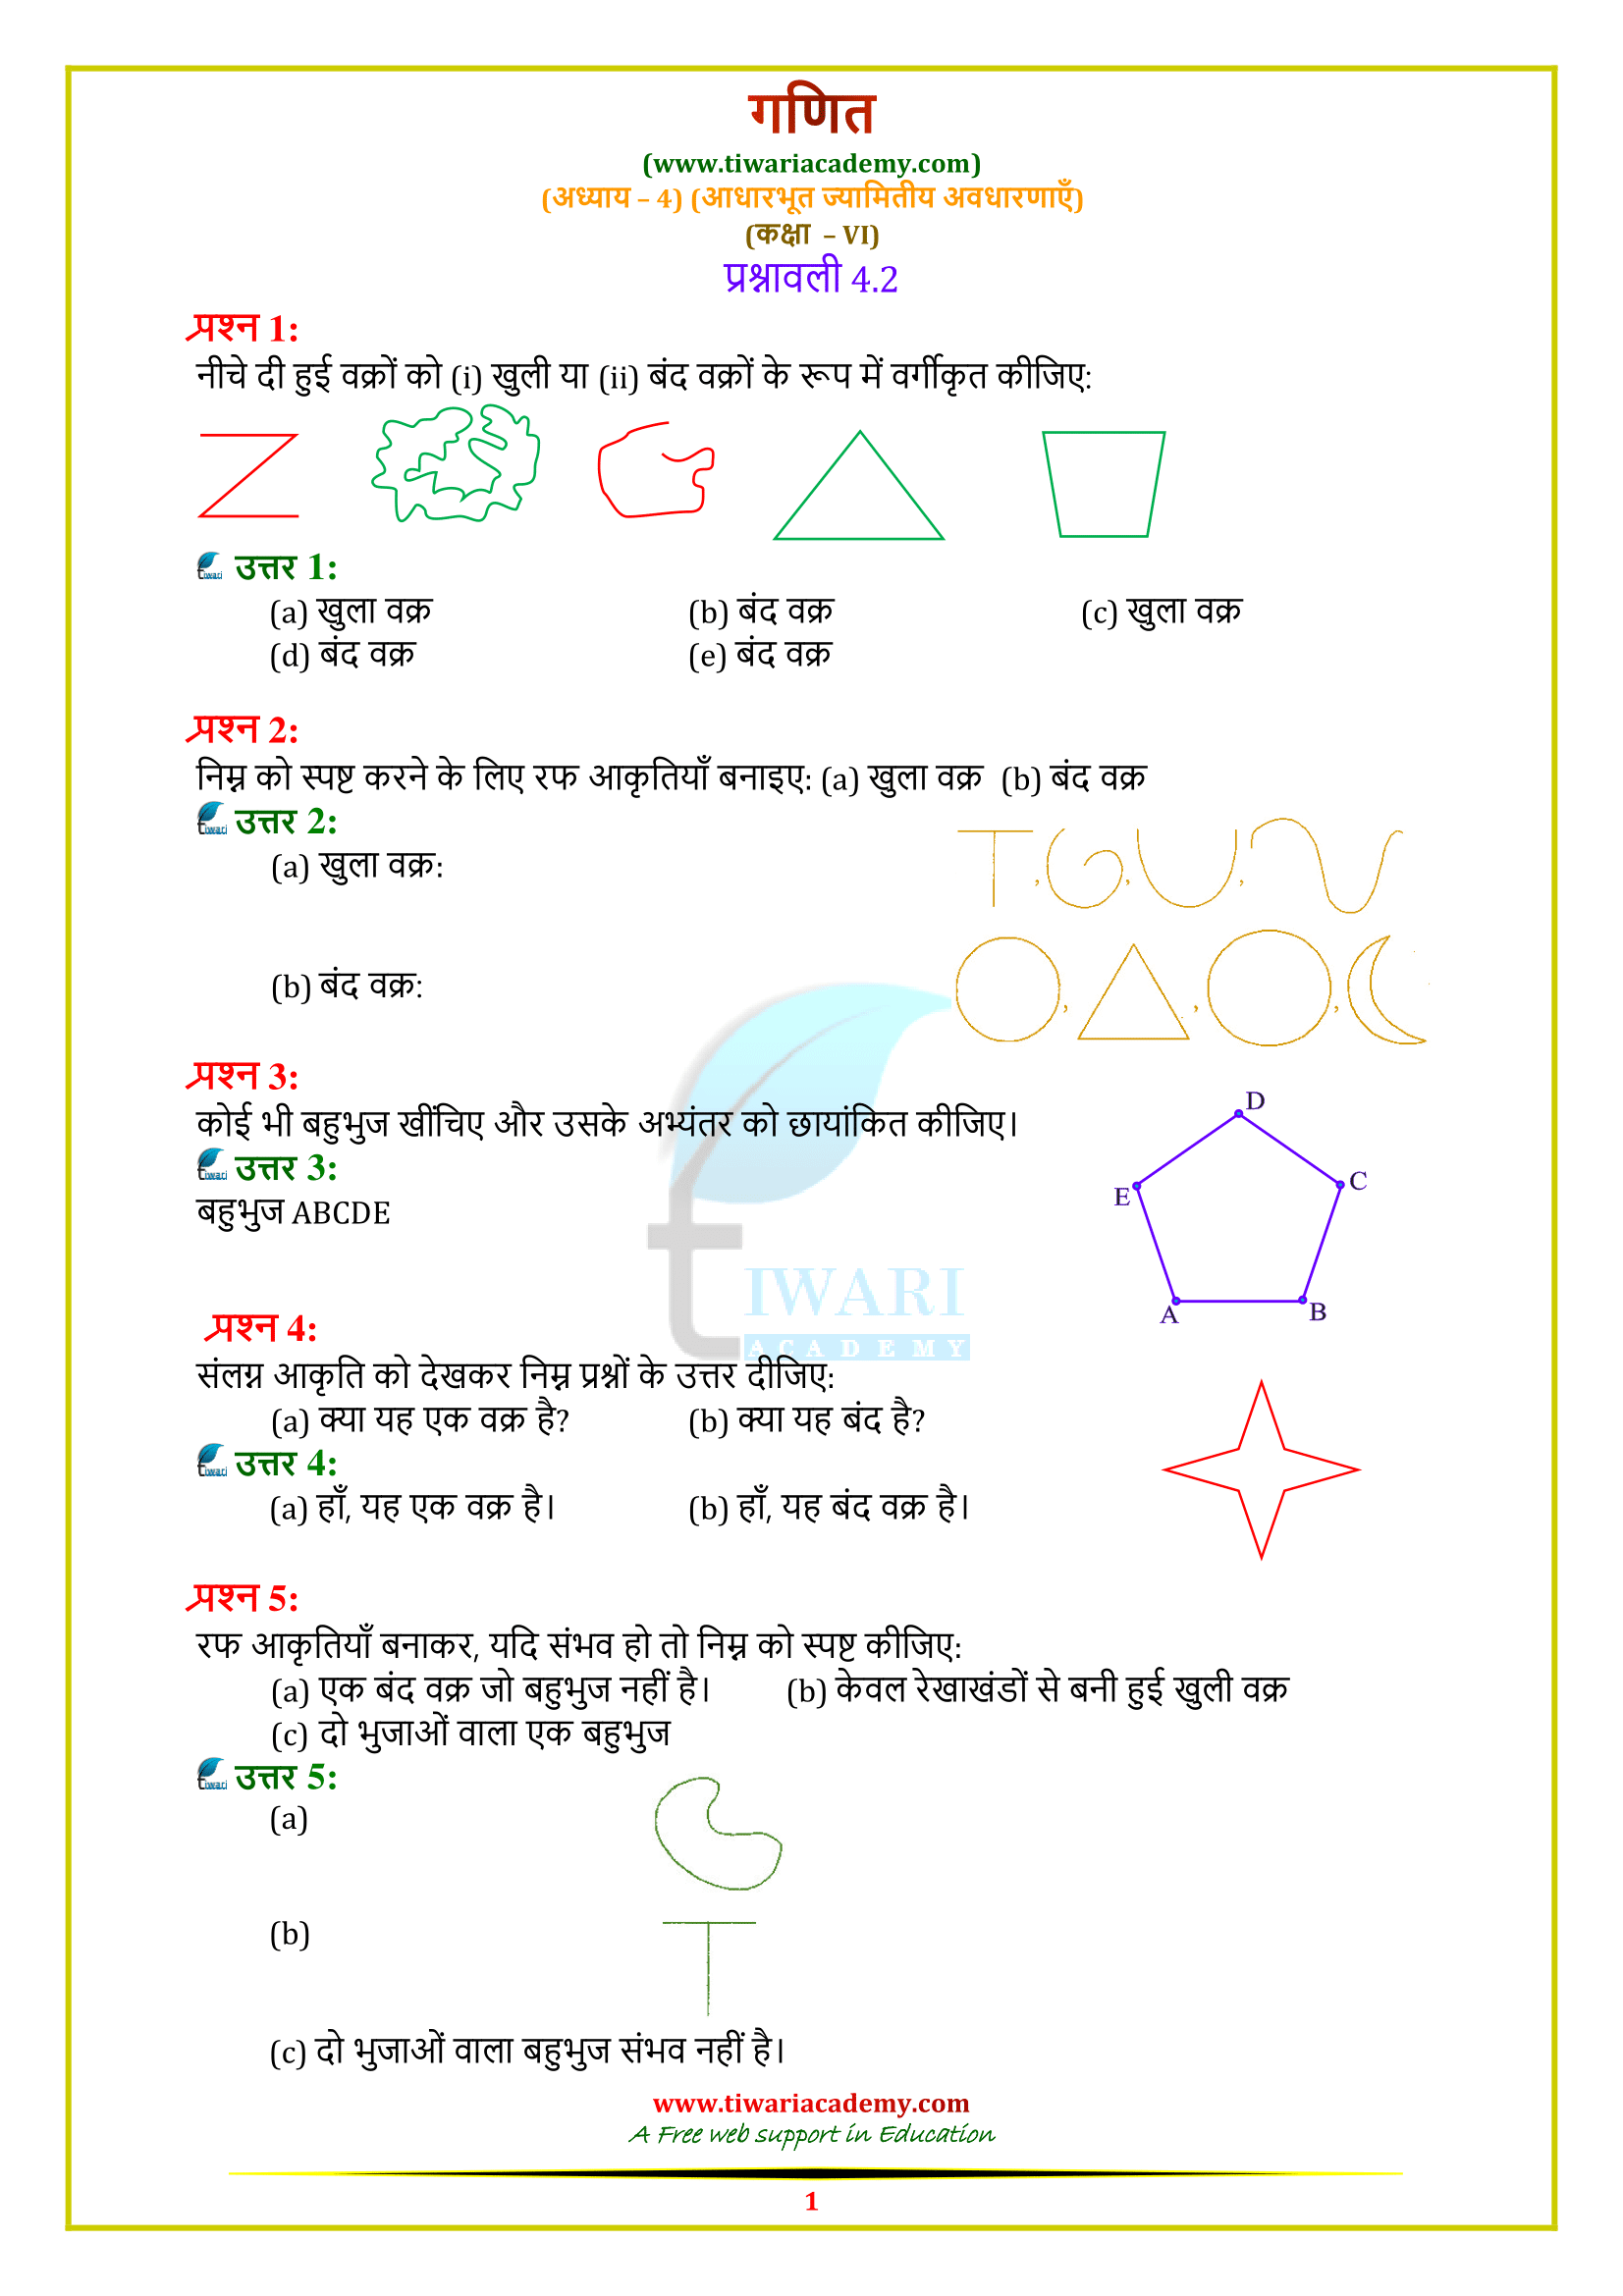 गणित
(www.tiwariacademy.com)
(अध्याय – 4) (आधारभूत ज्यामितीय अवधारणाएँ)
(कक्षा – VI)
प्रश्नावली 4.2
प्रश्न 1:
नीचे दी हुई वक्रों को (i) खुली या (ii) बंद वक्रों के रूप में वर्गीकृत कीजिए:
उत्तर 1:
(a) खुला वक्र (b) बंद वक्र (c) खुला वक्र
(d) बंद वक्र (e) बंद वक्र
प्रश्न 2:
निम्न को स्पष्ट करने के लिए रफ आकृतियाँ बनाइए: (a) खुला वक्र (b) बंद वक्र
उत्तर 2:
(a) खुला वक्र:
(b) बंद वक्र:
प्रश्न 3:
कोई भी बहुभुज खींचिए और उसके अभ्यंतर को छायांकित कीजिए।
उत्तर 3:
बहुभुज ABCDE
D
E
C
A
B
TIWARI
ACADEMY
प्रश्न 4:
संलग्न आकृति को देखकर निम्न प्रश्नों के उत्तर दीजिए:
(a) क्या यह एक वक्र है? (b) क्या यह बंद है?
उत्तर 4:
(a) हाँ, यह एक वक्र है। (b) हाँ, यह बंद वक्र है।
प्रश्न 5:
रफ आकृतियाँ बनाकर, यदि संभव हो तो निम्न को स्पष्ट कीजिए:
(a) एक बंद वक्र जो बहुभुज नहीं है। (b) केवल रेखाखंडों से बनी हुई खुली वक्र
(c) दो भुजाओं वाला एक बहुभुज
उत्तर 5:
(a)
(b)
(c) दो भुजाओं वाला बहुभुज संभव नहीं है।
www.tiwariacademy.com
A Free web support in Education
1